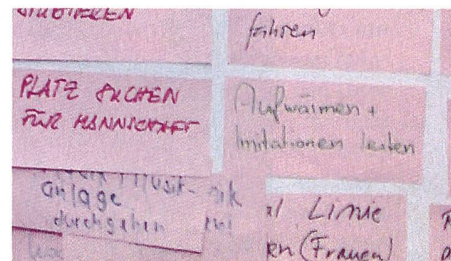 fahren
PLATZ SUCHEN
FÜR MANNSCHAFT
Aufwärmen +
Imitationen leiten
anlage
durchgehen
Linie
(Frauen)